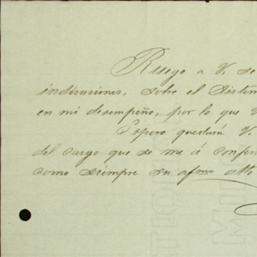 Ruego a V. se
indicaciones, sobre el Sistem
en mi desempeño, por lo que
Espero quedará V.
del cargo que se me á confer
como siempre su afmo atto